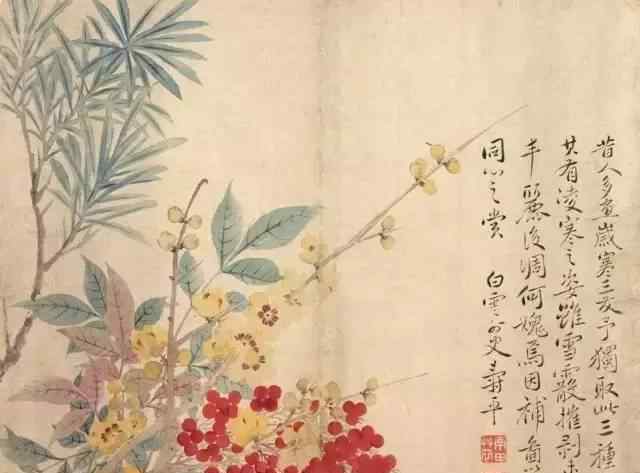 昔人多畫歲寒三友予獨取此三種
其有凌寒之姿雖雪霰摧剥
丰麗後凋何媿焉因補圖
同心之赏 白雲外史壽平